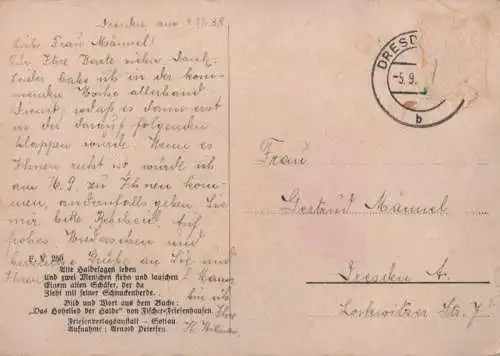 Dresden am 4.9.38.
Liebe Frau Männel!
Für Ihre Karte vielen Dank.
Leider habe ich in der kom-
menden Woche allerhand
Dienst, sodaß es dann erst
in der darauf folgenden
klappen würde. Wenn es
Ihnen recht ist würde ich
am 16.9. zu Ihnen kom-
men, andernfalls geben Sie
mir bitte Bescheid. Auf
frohes Wiedersehen und
herzliche Grüße an Sie und
Ihren
bin ich
Ihre
F. V. 250
Alte Haidesagen leben
und zwei Menschen stehn und lauschen
Einem alten Schäfer, der da
Zieht mit seiner Schnuckenherde.
Bild und Wort aus dem Buche:
"Das Hohelied der Haide" von Fischer-Friesenhausen.
Friesenverlagsanstalt - Soltau.
Aufnahme: Arnold Petersen.
DRESD
-5.9.
b
Frau
Gertrud Männel
Dresden A.
Lockwitzer Str. 7